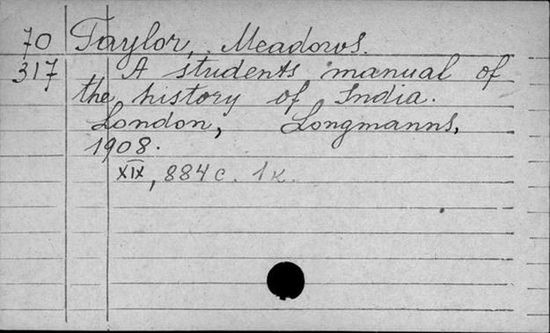 70 Taylor, Meadows.
317 A students manual of
the history of India.
London, Longmanns,
1908.
XIX, 884 c. 1 к.